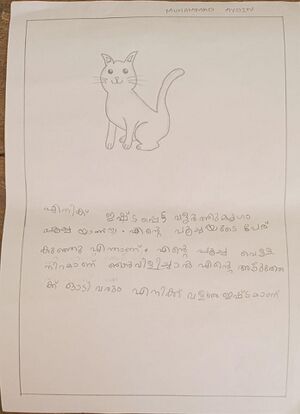 MUHAMMAD AYDIN
എനിക്ക് ഇഷ്ടപ്പെട്ട വളർത്തുമൃഗം
പൂച്ച യാണ്. എന്റെ പൂച്ചയുടെ പേര്
കുഞ്ഞു എന്നാണ്. എന്റെ പൂച്ച വെള്ള
നിറമാണ് ഞാൻ വിളിച്ചാൽ എന്റെ അടുത്തേ
ക്ക് ഓടി വരും എനിക്ക് വളരെ ഇഷ്ടമാണ്